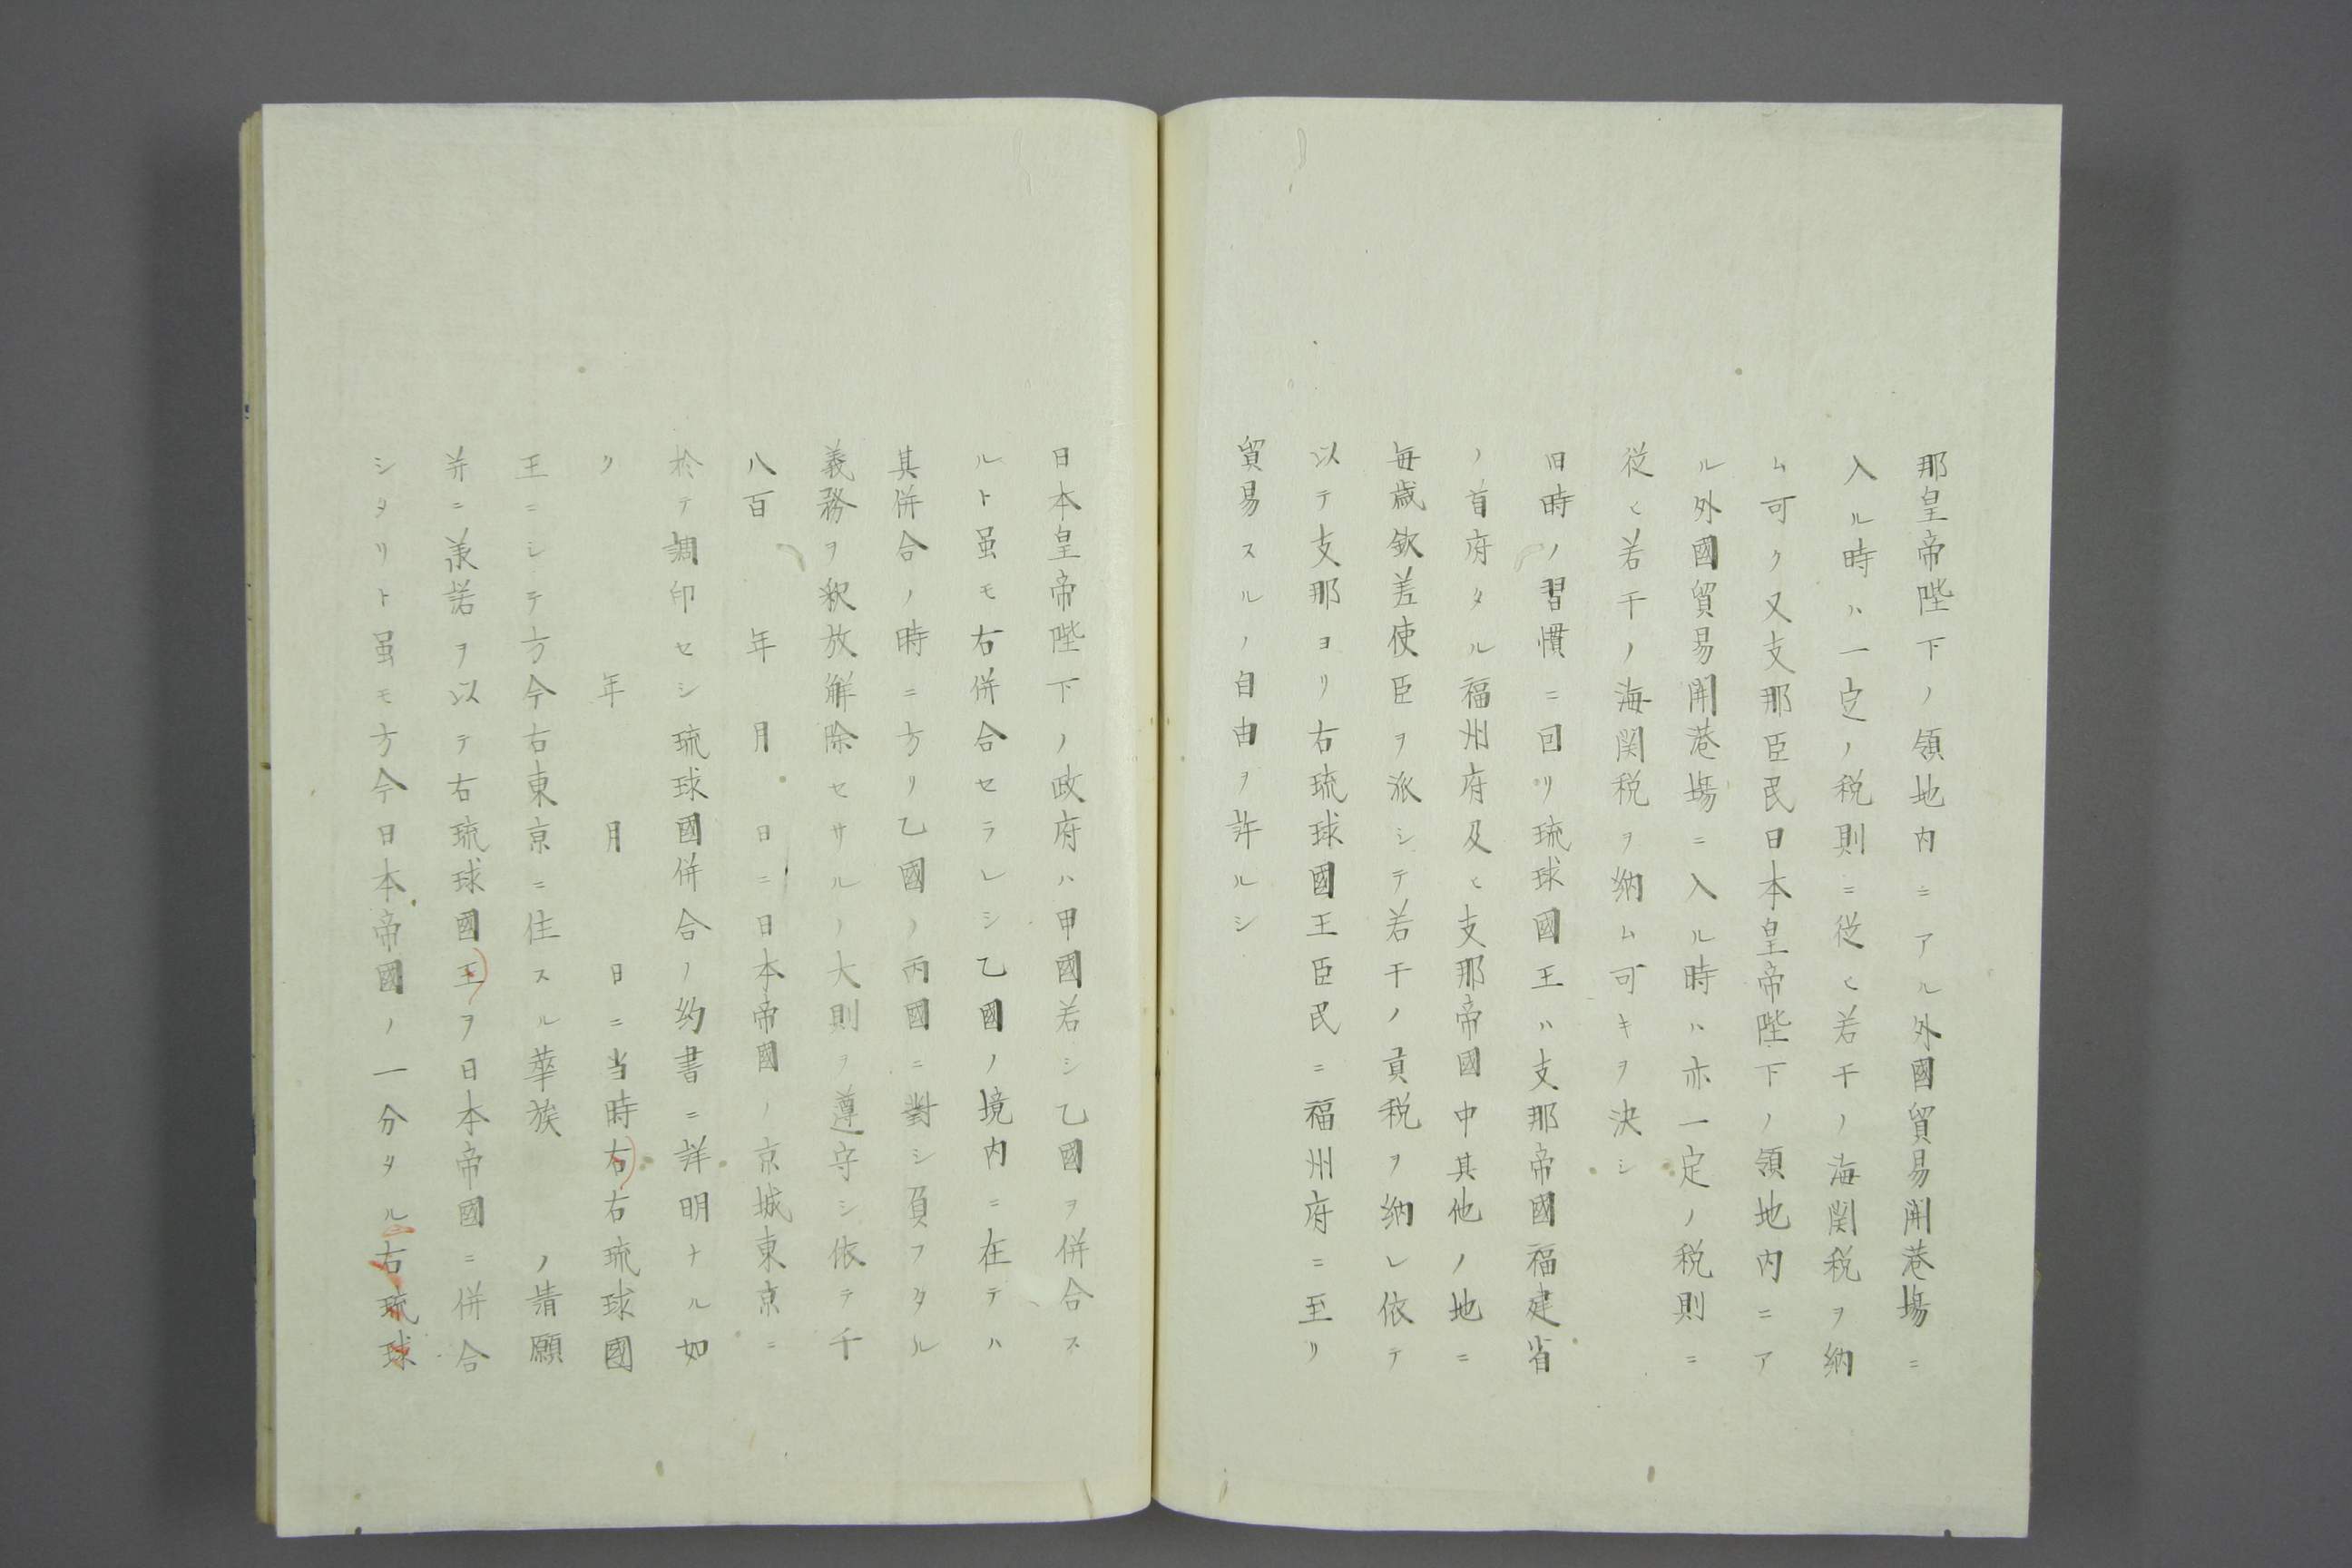 那皇帝陛下ノ領地内ニアル外國貿易開港場ニ
入ル時ハ一定ノ税則ニ從ヒ若干ノ海関税ヲ納
ム可ク又支那臣民日本皇帝陛下ノ領地内ニア
ル外國貿易開港場ニ入ル時ハ亦一定ノ税則ニ
從ヒ若干ノ海関税ヲ納ム可キヲ決シ
旧時ノ習慣ニ回リ琉球國王ハ支那帝國福建省
ノ首府タル福州府及ヒ支那帝國中其他ノ地ニ
毎歳欽差使臣ヲ派シテ若干ノ貢税ヲ納レ依テ
以テ支那ヨリ右琉球國王臣民ニ福州府ニ至リ
貿易スルノ自由ヲ許ルシ
日本皇帝陛下ノ政府ハ甲國若シ乙國ヲ併合ス
ルト虽モ右併合セラレシ乙國ノ境内ニ在テハ
其併合ノ時ニ方リ乙國ノ丙國ニ對シ負フタル
義務ヲ釈放解除セサルノ大則ヲ遵守シ依テ千
八百年月日ニ日本帝國ノ京城東京ニ
於テ調印セシ琉球國併合ノ約書ニ詳明ナル如
ク年月日ニ当時右右琉球國
王ニシテ方今右東京ニ住スル華族ノ請願
并ニ承諾ヲ以テ右琉球國王ヲ日本帝國ニ併合
シタリト虽モ方今日本帝國ノ一分タル右琉球